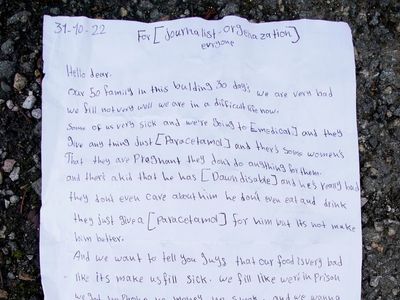 31-10-22
For [Journalist-orgenazation]
everyone
Hello dear.
Our 50 family in this bulding 30 days we are very bad
we fill not very well we are in a difficult life now.
Some of us very sick and we're going to Emedical] and they
give any thing Just [Paracetamol] and there's Somes women's
That they are Pregnant they dont do anything for them.
and there's a kid that he has [Dawn disable] and he's really bad
they dont even care about him he dont even eat and drink
they just give a [paracetamol] for him but its not make
him bether.
And we want to tell you guys that our food is very bad
like its make us fill sick. we fill like we're in Prison